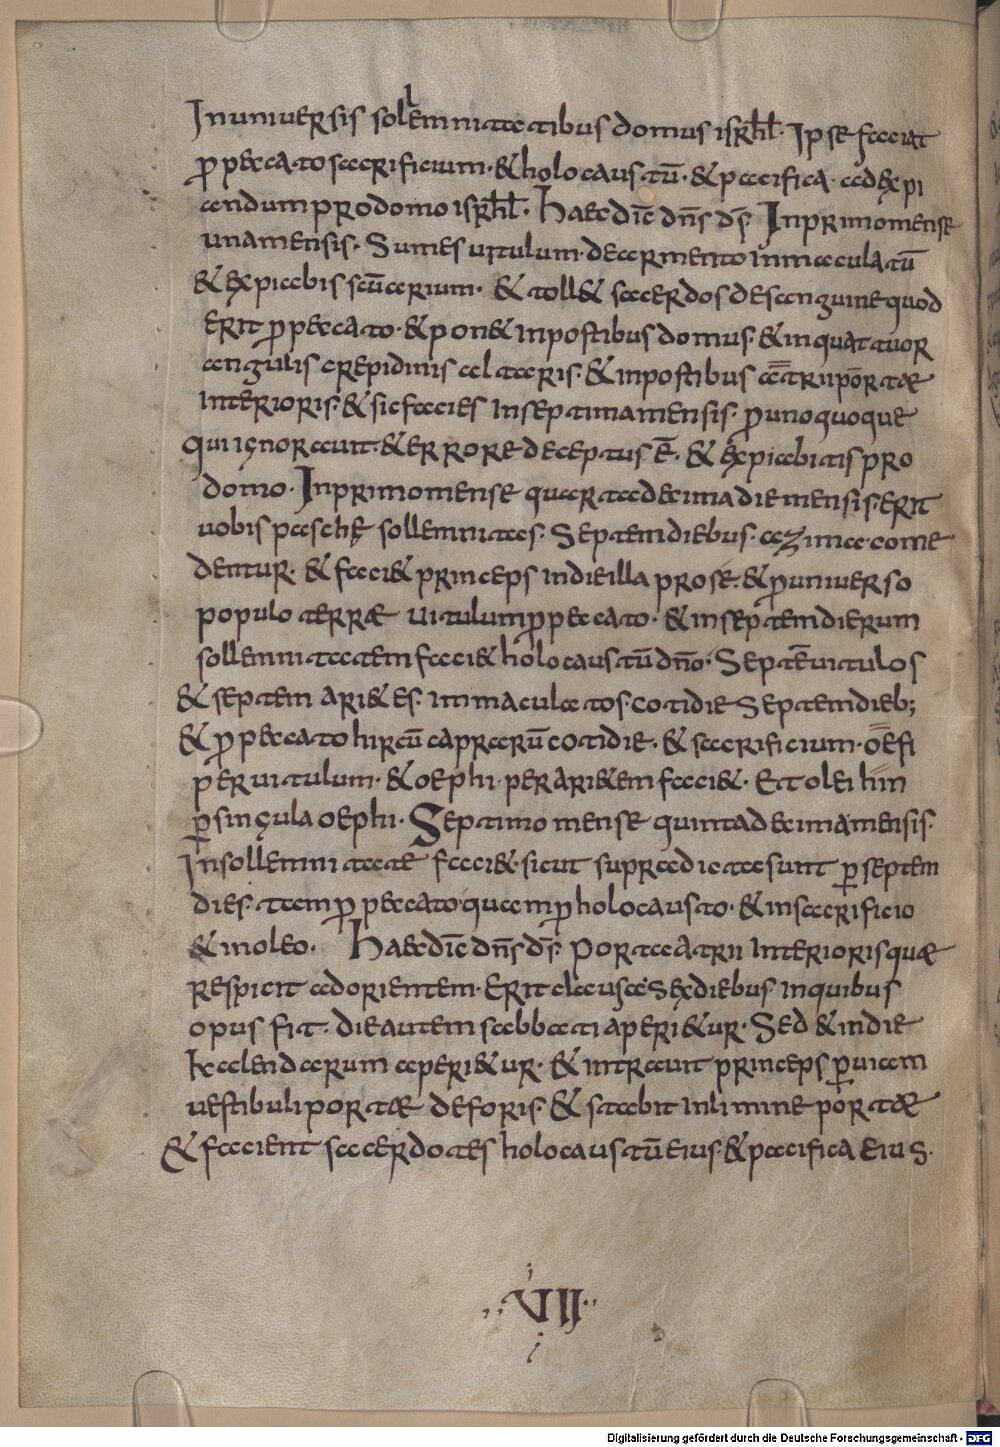 In universis sollemnitatibus domus isrhl. Ipse faciat
p peccato sacrificium. & holocaustū. & pacifica. ad expi
andum pro domo isrhl. Haec dic̄ dn̄s ds̄. In primo mense
una mensis. Sumes vitulum de armento inmaculatū
& expiabis sc̄uarium. & toll& sacerdos de sanguine quod
erit p peccato. & pon& in postibus domus. & in quattuor
angulis crepidinis altaris. & in postibus atrii portae
interioris. & sic facies in septima mensis. p uno quoque
qui ignoravit. & errore deceptus ē. & expiabitis pro
domo. In primo mense quarta decima die mensis. erit
vobis paschę sollemnitas. Septem diebus. azima come
dentur. & faci& princeps in die illa pro se. & p universo
populo terrae vitulum p peccato. & in septem dierum
sollemnitatem faci& holocaustū dn̄o. Septē vitulos
& septem ari&es. immaculatos. cotidie septem dieb;
& p peccato hircū caprarū cotidie. & sacrificium. oefi
per vitulum. & oephi. per ari&em faci&. Et olei hin
p singula oephi. Septimo mense quinta decima mensis.
In sollemnitate faci&. sicut supra dicta sunt p septem
dies. tam p peccato quam p holocausto. & in sacrificio
& in oleo. Haec dic̄ dn̄s ds̄. Porta atrii interioris quae
respicit ad orientem. Erit clausa sex diebus. in quibus
opus fit. die autem sabbati aperi&ur. Sed & in die
kalendarum aperi&ur. & intravit princeps p viam
vestibuli portae de foris. & stabit in limine portae
& facient sacerdotes holocaustū eius. & pacifica eius.
VII
Digitalisierung gefördert durch die Deutsche Forschungsgemeinschaft - DFG